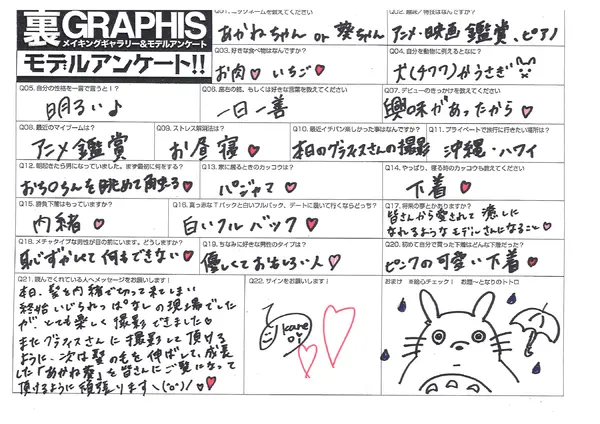 裏GRAPHIS
メイキングギャラリー&モデルアンケート
モデルアンケート!!
Q01.ニックネームを教えてください
あかねちゃん or 葵ちゃん
Q02.趣味/特技はなんですか?
アニメ・映画鑑賞、ピアノ
Q03.好きな食べ物はなんですか?
お肉♡ いちご♡
Q04.自分を動物に例えるとなに?
犬(チワワ)かうさぎ
Q05.自分の性格を一言で言うと!?
明るい♪
Q06.座右の銘、もしくは好きな言葉を教えてください
一日一善
Q07.デビューのきっかけを教えてください
興味があったから♡
Q08.最近のマイブームは?
アニメ鑑賞
Q09.ストレス解消法は?
お昼寝♡
Q10.最近イチバン楽しかった事はなんですか?
本日のグラフィスさんの撮影
Q11.プライベートで旅行に行きたい場所は?
沖縄・ハワイ
Q12.朝起きたら男になっていました。まず最初に何をする?
おち○ちんを眺めて触る♡
Q13.家に居るときのカッコウは?
パジャマ♡
Q14.やっぱり、寝る時のカッコウも教えてください
下着♡
Q15.勝負下着はもっていますか?
内緒♡
Q16.真っ赤なTバックと白いフルバック、デートに着いて行くならどっち?
白いフルバック♡
Q17.将来の夢とかありますか?
皆さんから愛されて癒しに
なれるようなモデルさんになること♡
Q18.メチャタイプな男性が目の前にいます。どうしますか?
恥ずかしくて何もできない♡
Q19.ちなみに好きな男性のタイプは?
優しくておもしろい人♡
Q20.初めて自分で買った下着はどんな下着だった?
ピンクの可愛い下着♡
Q21.読んでくれている人へメッセージをお願いします!
本日、髪を内緒で切って来てしまい
終始いじられっぱなしの現場でした
が、とても楽しく撮影できました♡
またグラフィスさんに撮影して頂ける
ように、次は髪の毛を伸ばして、成長
した「あかね葵」を皆さんにご覧になって
頂けるように頑張ります\(^o^)/♡
Q22.サインをお願いします!
おまけ ※絵心チェック! お題~となりのトトロ